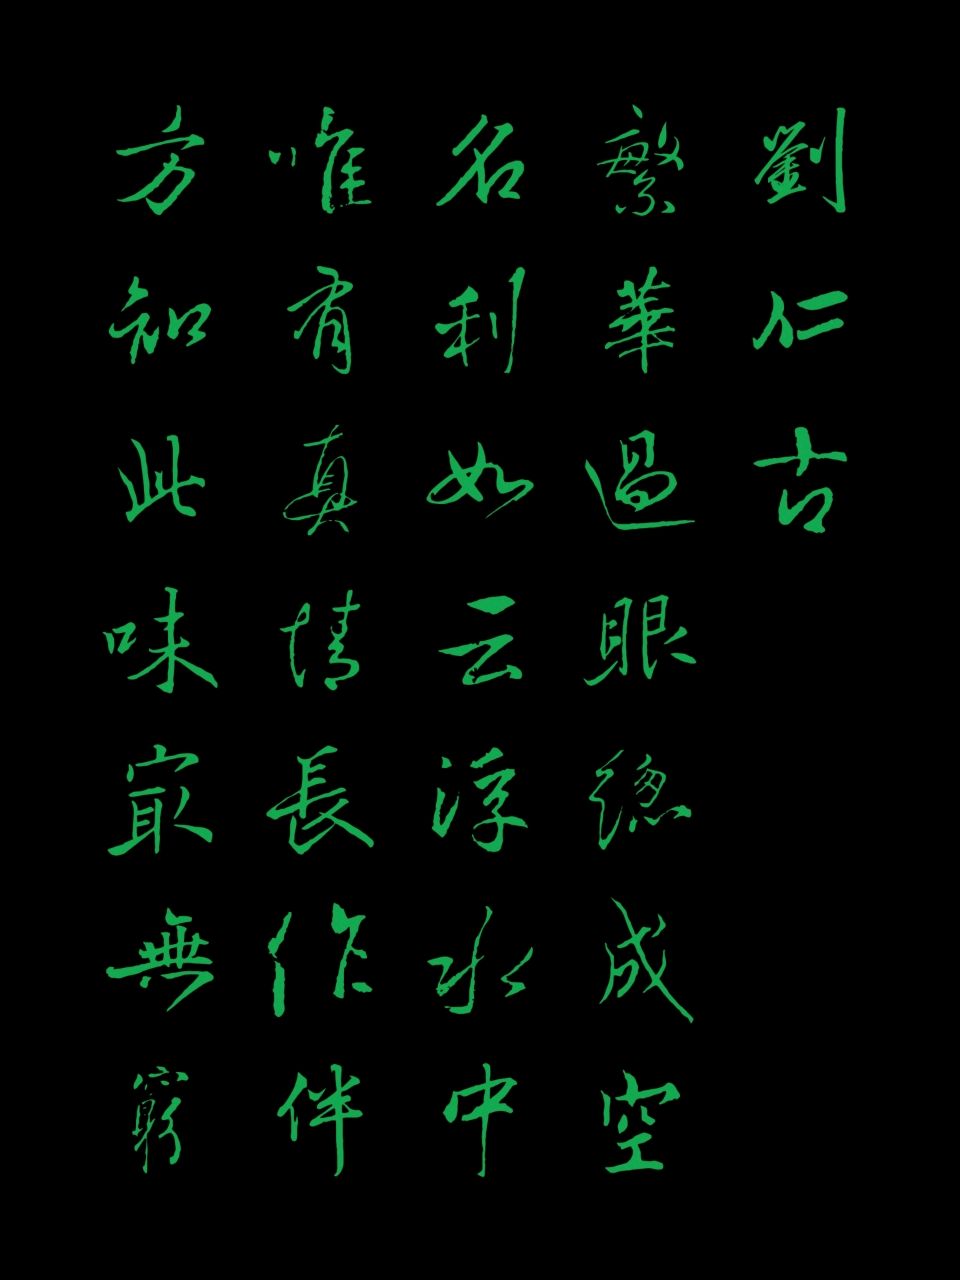 劉仁古
繁華過眼總成空
名利如云浮水中
唯有真情長作伴
方知此味寂無窮